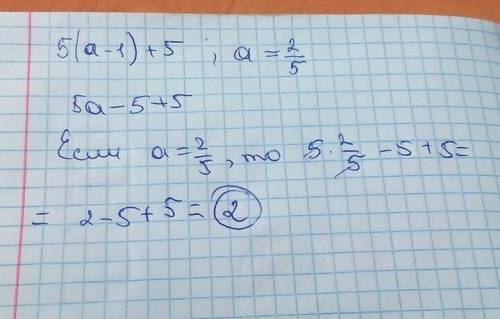 5(a-1)+5 ; a = 2/5
5a-5+5
Если a = 2/5, то 5 · 2/5 - 5 + 5 =
= 2-5+5 = 2